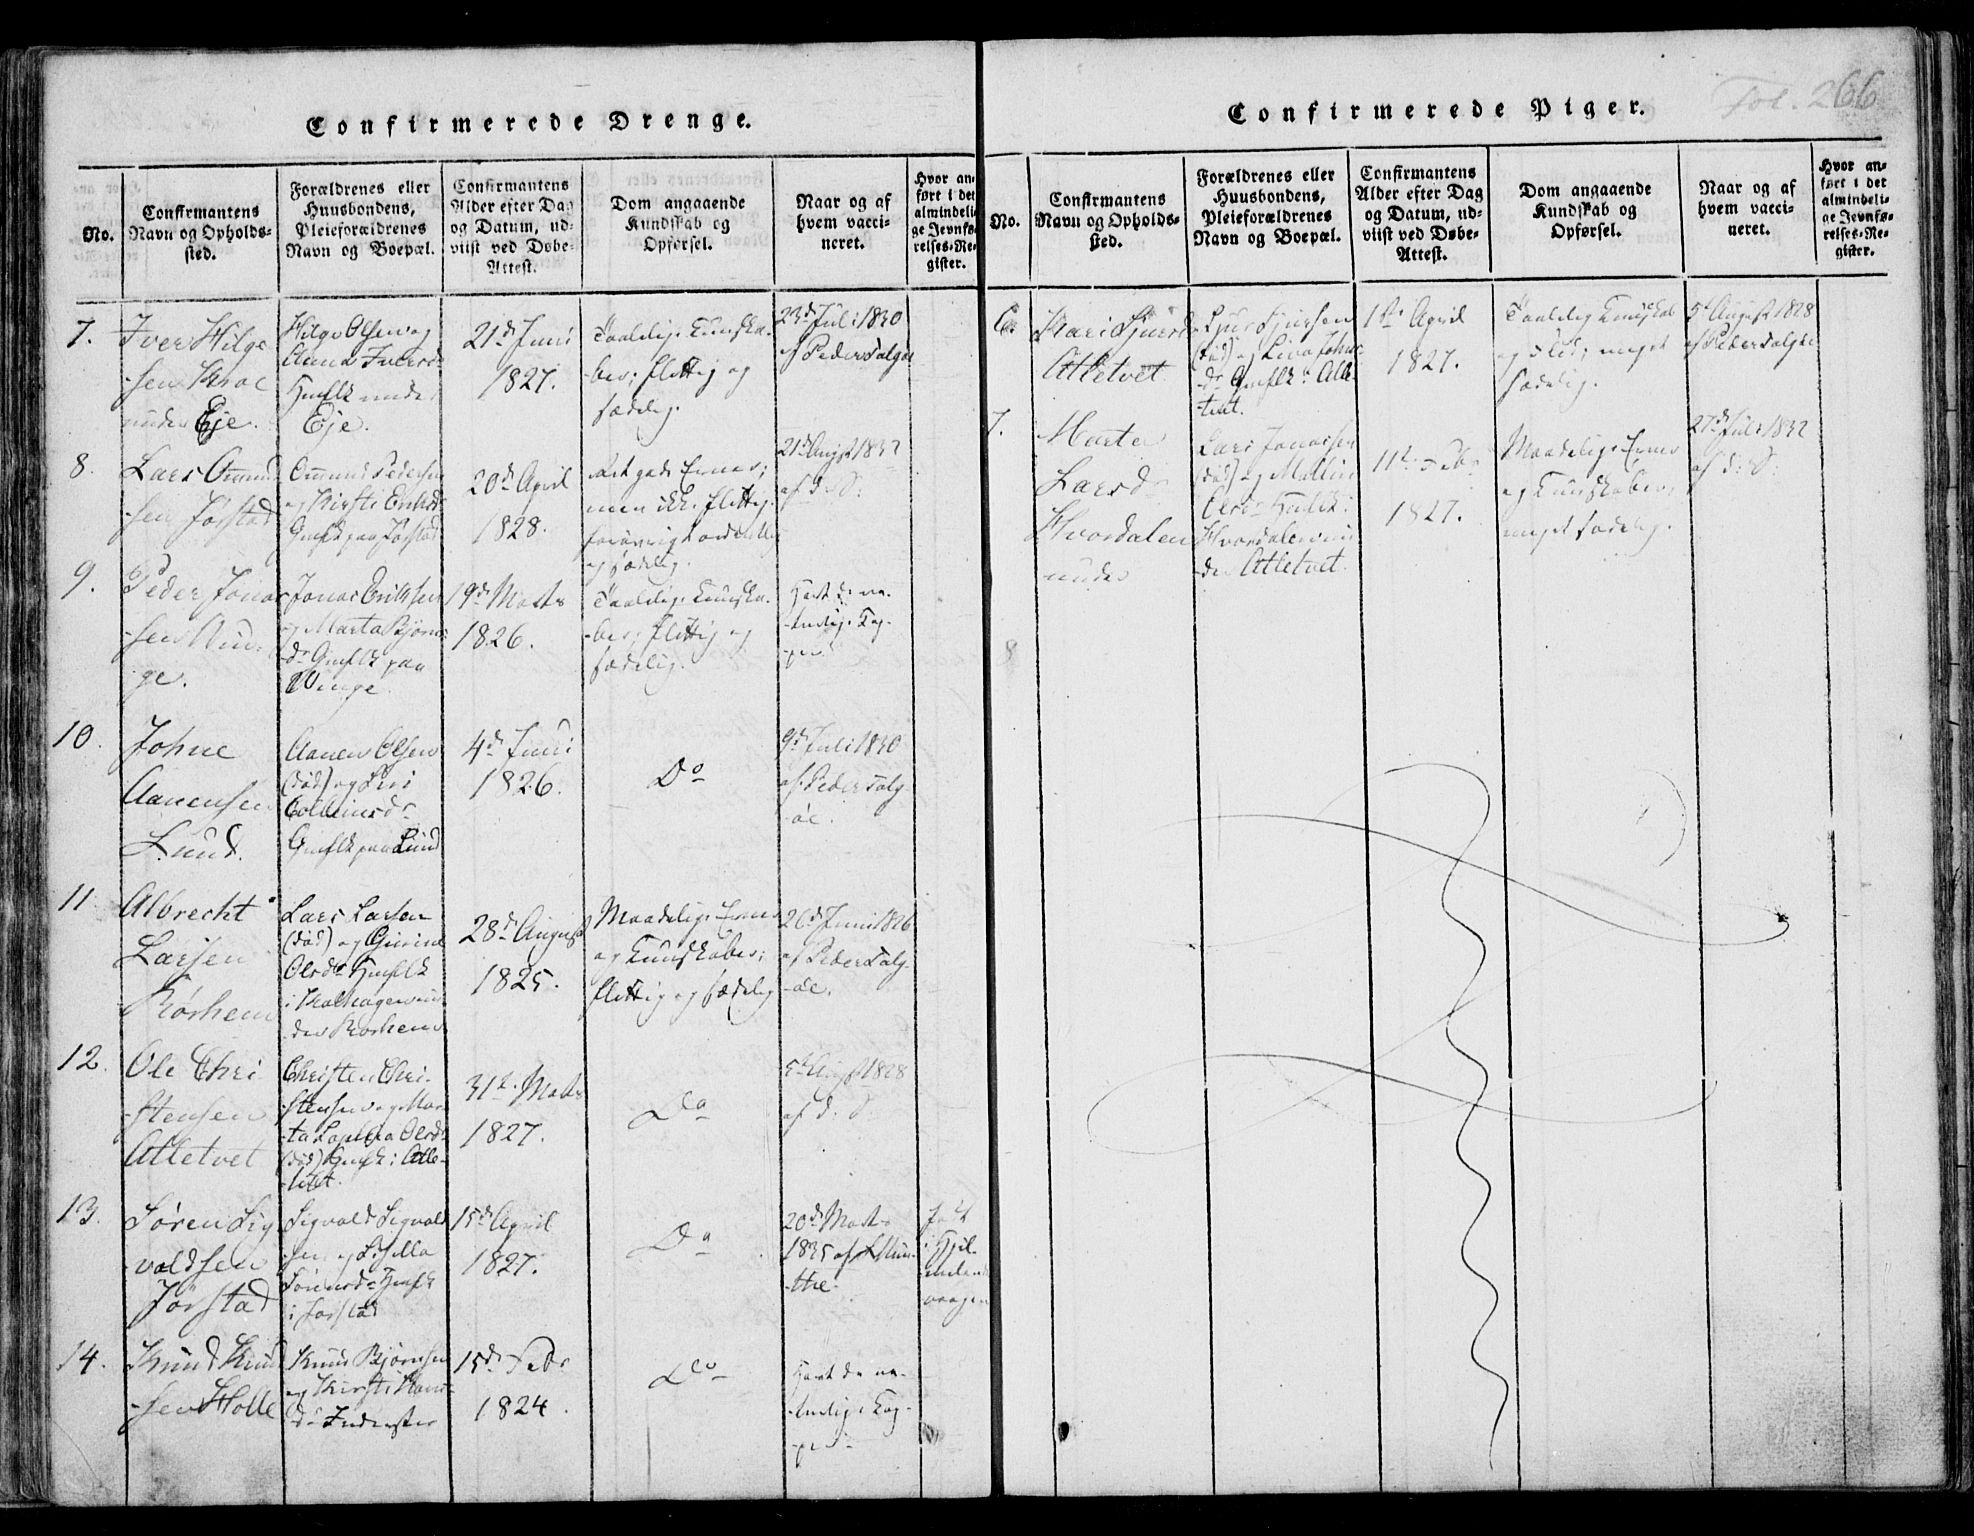 Fol. 266
Confirmerede Drenge.
No.
Confirmantens
Navn og Opholds-
sted.
Forældrenes eller
Huusbondens,
Pleieforældrenes
Navn og Boepæl.
Confirmantens
Alder efter Dag
og Datum, ud-
viist ved Døbe-
Attest.
Dom angaaende
Kundskab og
Opførsel.
Naar og af
hvem vacci-
neret.
Hvor an-
ført i det
almindeli-
ge Jevnfø-
relses-Re-
gister.
7.
Iver Hilge
-sen Kroe
under Eje.
Hilge Olsen og
Anna Iversd
Huusflk under
Eje.
21d Juni
1827.
Taalelige Kundska-
ber; flittig og
sædelig.
23d Juli 1830
af Peder Talgøe
8.
Lars Omund
-sen Jørstad
Omund Pedersen
og Kirsti Eriksd
Gmflk paa Jørstad
20d April
1828.
Ret gode Evner;
men ikke flittig.
forøvrigt ordentlig
og sædelig.
21d Augst 1832
af d: S:
9.
Peder Jonas
-sen Win-
ge.
Jonas Eriksen
og Marta Bjørns
-dr Gmflk paa
Winge.
19d Marts
1826.
Taalelige Kundska-
ber; flittig og
sædelig.
Havt de na-
-turlige Kop-
per.
10.
Johne
Aanensen
Lund.
Aanen Olsen
(død) og Siri
Colbeinsdr
Gmflk paa Lund
4d Juni
1826.
Do
9d Juli 1830
af Peder Talg-
-øe.
11
Albrecht
Larsen
Rørhem
Lars Larsen
(død) og Gurine
Olsdr Huusflk
i Kalhagen un
-der Rørhem
28d August
1825.
Maadelige Evner
og Kundskaber;
flittig og sædelig
26d Juni 1826
af Peder Talg-
-øe.
12.
Ole Chri
-stensen
Atletvet
Christen Chri-
stensen og Mar
-ta Olsd
(død) Gmflk i Atle-
-tvet.
31t Marts
1827.
Do
5t Augst 1828
af d: S
13.
Søren Sig
-valdsen
Jørstad
Sigvald Sigvald
-sen og Sisilla
Sørensdr Huusflk
i Jørstad
15d April
1827.
Do
20d Marts
1835 af Mun-
-the.
14.
Knud Knud
-sen Holle
Knud Bjørnsen
og Kirsti
-dr Inderster
15d Febr
1824.
Do
Havt de na-
-turlige Kop-
-per
Confirmerede Piger.
No.
Confirmantens
Navn og Opholds-
sted.
Forældrenes eller
Huusbondens,
Pleieforældrenes
Navn og Boepæl.
Confirmantens
Alder efter Dag
og Datum, ud-
viist ved Døbe-
Attest.
Dom angaaende
Kundskab og
Opførsel.
Naar og af
hvem vacci-
neret.
Hvor an-
ført i det
almindeli-
ge Jevnfø-
relses-Re-
gister.
6.
Kari Sjursd
Atletvet
Sjur Sjursen
(død) og Siva Johns
-dr Gmflk i Atle-
tvet.
1ste April
1827.
Taalelig Kundskab
og Flid; meget
sædelig.
5t August 1828
af Peder Talgøe
7.
Marta
Larsdr
Hvordalen
under
Lars Jonassen
(død) og Mallene
Olsdr Huusflk i
Hvordalen un
-der Atletvet.
11t Febr
1827.
Maadelige Evner
og Kundskaber;
meget sædelig.
27d Juli 1832
af d: S:
8